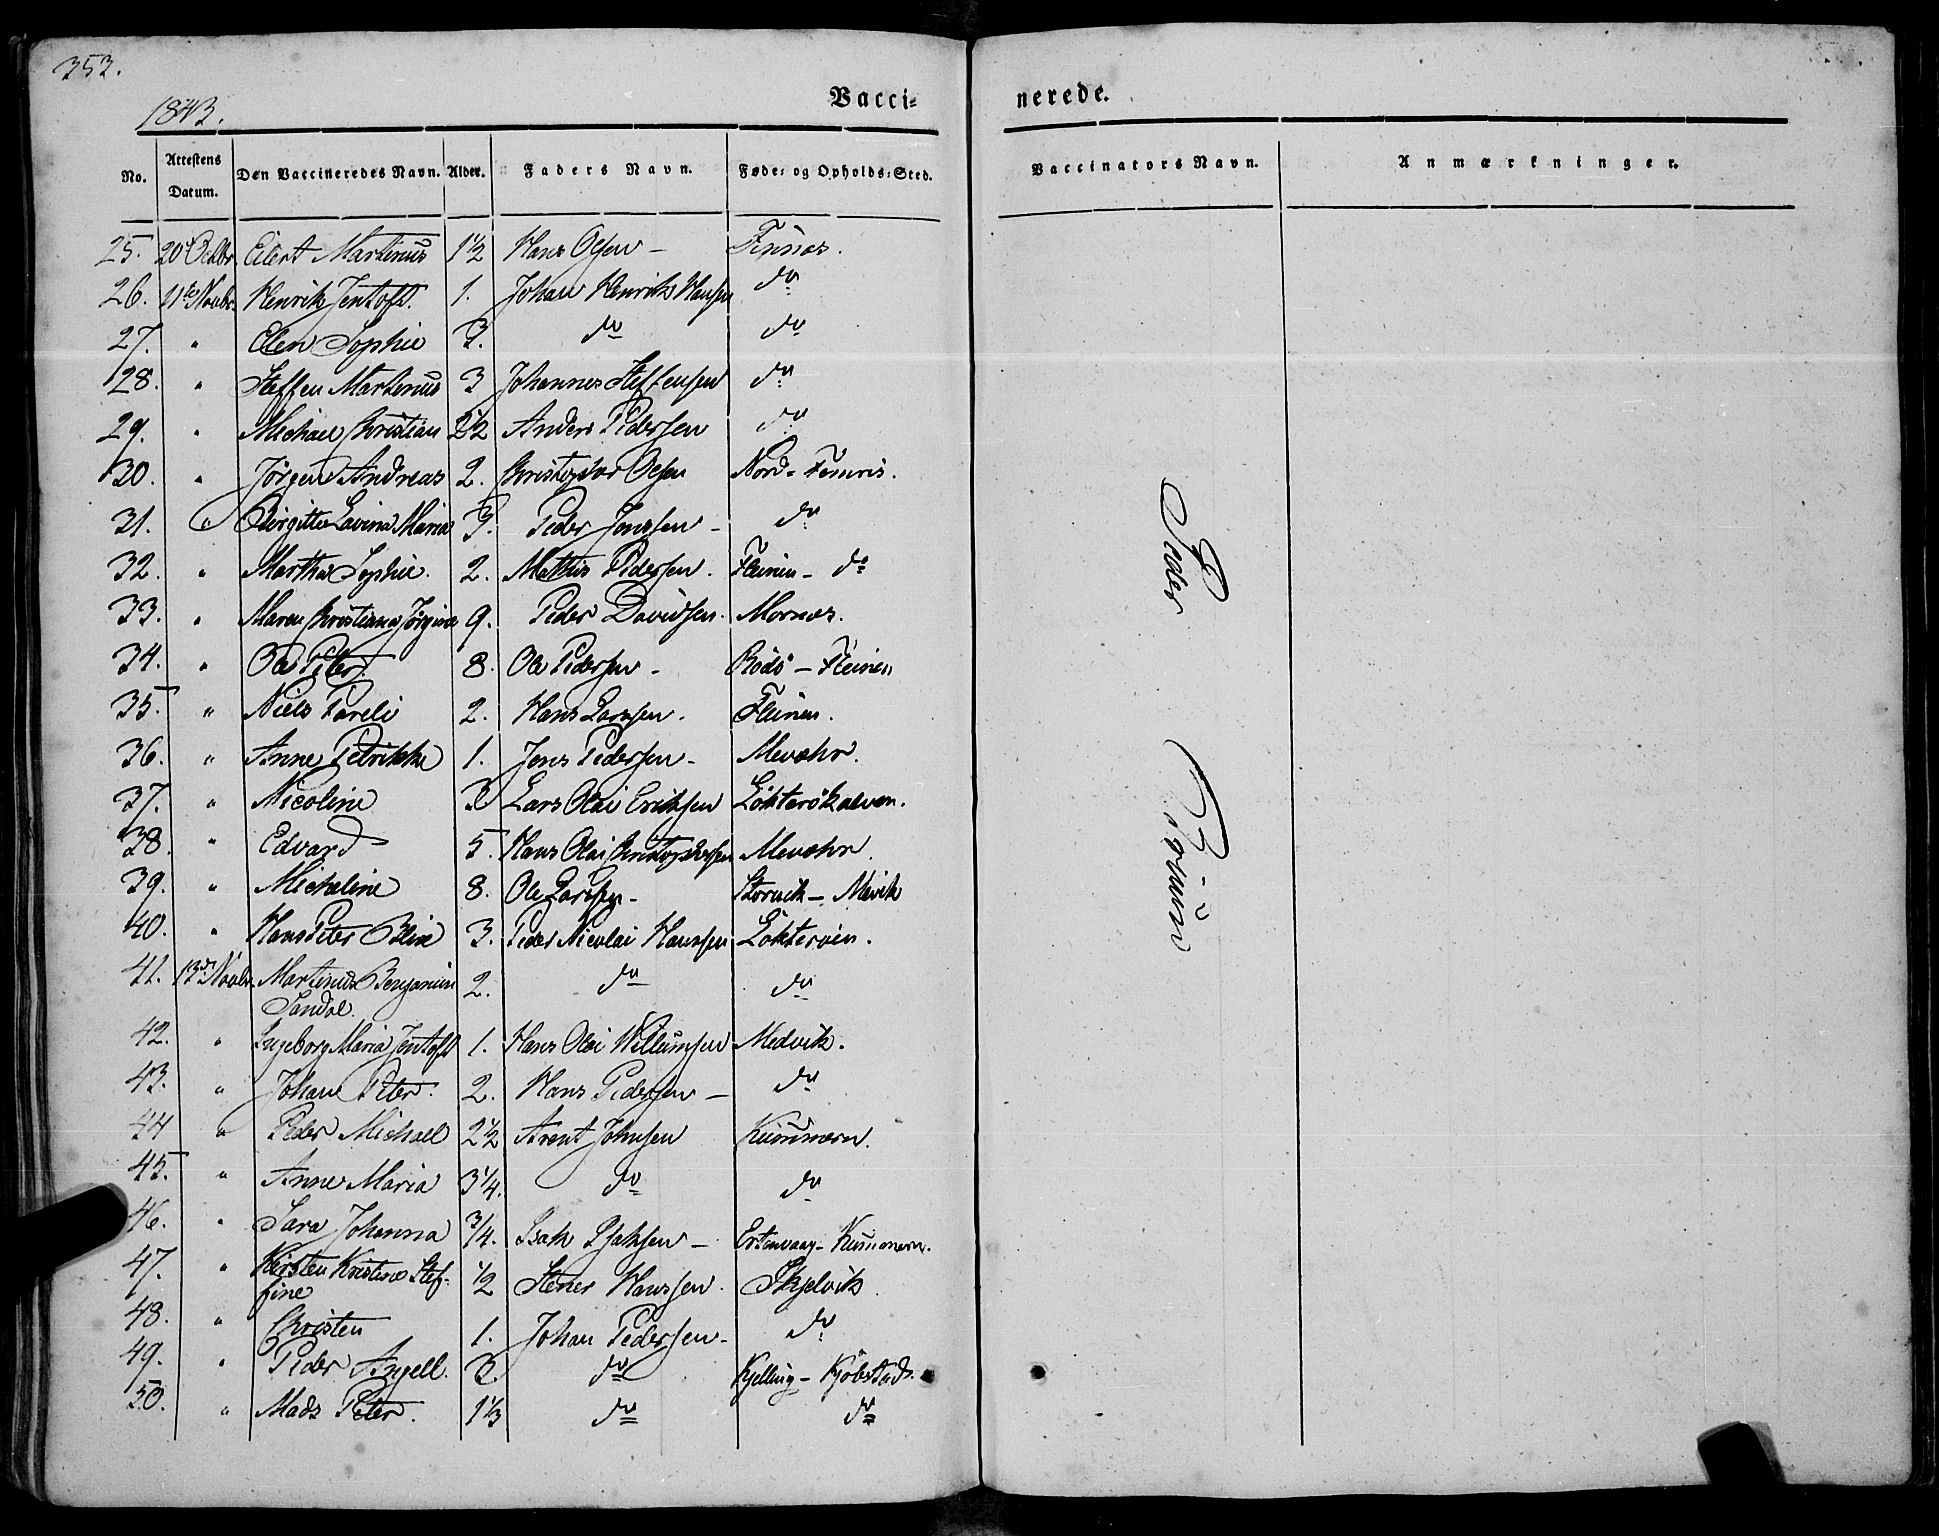 353.
1843.
Vacci- nerede.
No. Attestens Datum. Den Vaccineredes Navn. Alder. Faders Navn. Føde- og Opholds-Sted. Vaccinators Navn. Anmærkninger.
25. 20 Octbr Eilert Martinus 1½ Hans Olsen - Finnæs.
26. 11te Novbr. Henrik Jentoft. 1. Johan Henrik Hansen do
27. " Elen Sophie 3. do do
28. " Steffen Martinus 3 Johannes Steffensen do
29. " Michael Christian 2½ Anders Pedersen do
30. " Jörgen Andreas 2. Christopher Olsen Nord-Femris.
31. " Birgitte Lavina Maria 3. Peder Jonssen - do
32. " Martha Sophie. 2. Mathis Pedersen. Fleinen - do
33. " Maren Christiana Jörgine 9. Peder Davidsen. Mornæs.
34. " Ole Peter. 8. Ole Pedersen - Rödö - Fleinen
35. " Niels Pareli 2. Hans Larssen. Fleinen.
36. " Anne Petrikke 1. Jens Pedersen - Mevæhr.
37. " Nicoline 3 Lars Olai Eriksen Lökterökalven.
38. " Edvard 5. Hans Olai Christophersen Mevæhr.
39. " Micheline 8. Ole Larssen - Storvik - Mevik
40. " Hans Peter Blix 3. Peder Nicolai Hanssen Lökteröen.
41. 13de Novbr. Martinus Benjamin Sandal. 2. do do
42. " Ingeborg Maria Jentoft 1. Hans Olai Willumsen Medvik.
43. " Johan Peter. 2. Hans Pedersen - do
44 " Peder Michael 2½ Arent Johnsen Kunnæren.
45. " Anne Maria 3¼. do do
46. " Sara Johanna ¾. Isak Isaksen - Ertenvaag - Kunnæren.
47. " Kirsten Kristine Stef-
fine ½ Stener Hanssen. Skjelvik.
48. " Christen 1. Johan Pedersen - do
49. " Peder Angell. 3. do Kjelling - Kjöbstad.
50. " Mads Peter. 1⅓ do do
Peder Brüun